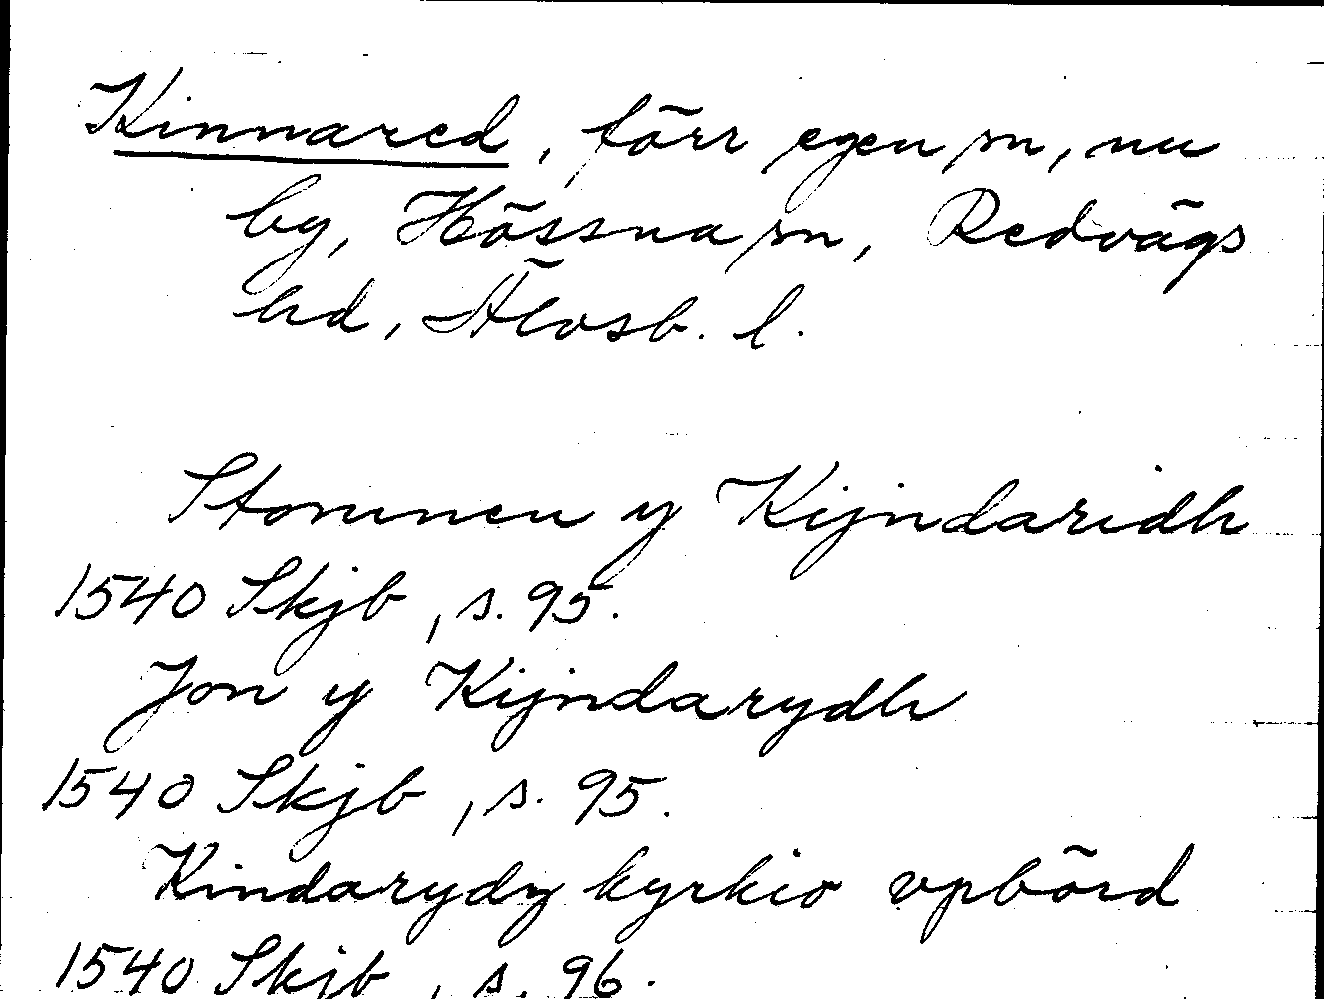 Kinnared, förr egen sn, nu
by, Hössna sn, Redvägs
hd, Älvsb. l.
Stommen y Kijndaridh
1540 Skjb, s. 95.
Jon y Kijndarydh
1540 Skjb, s. 95.
Kindarydz kyrkio vpbörd
1540 Skjb, s. 96.